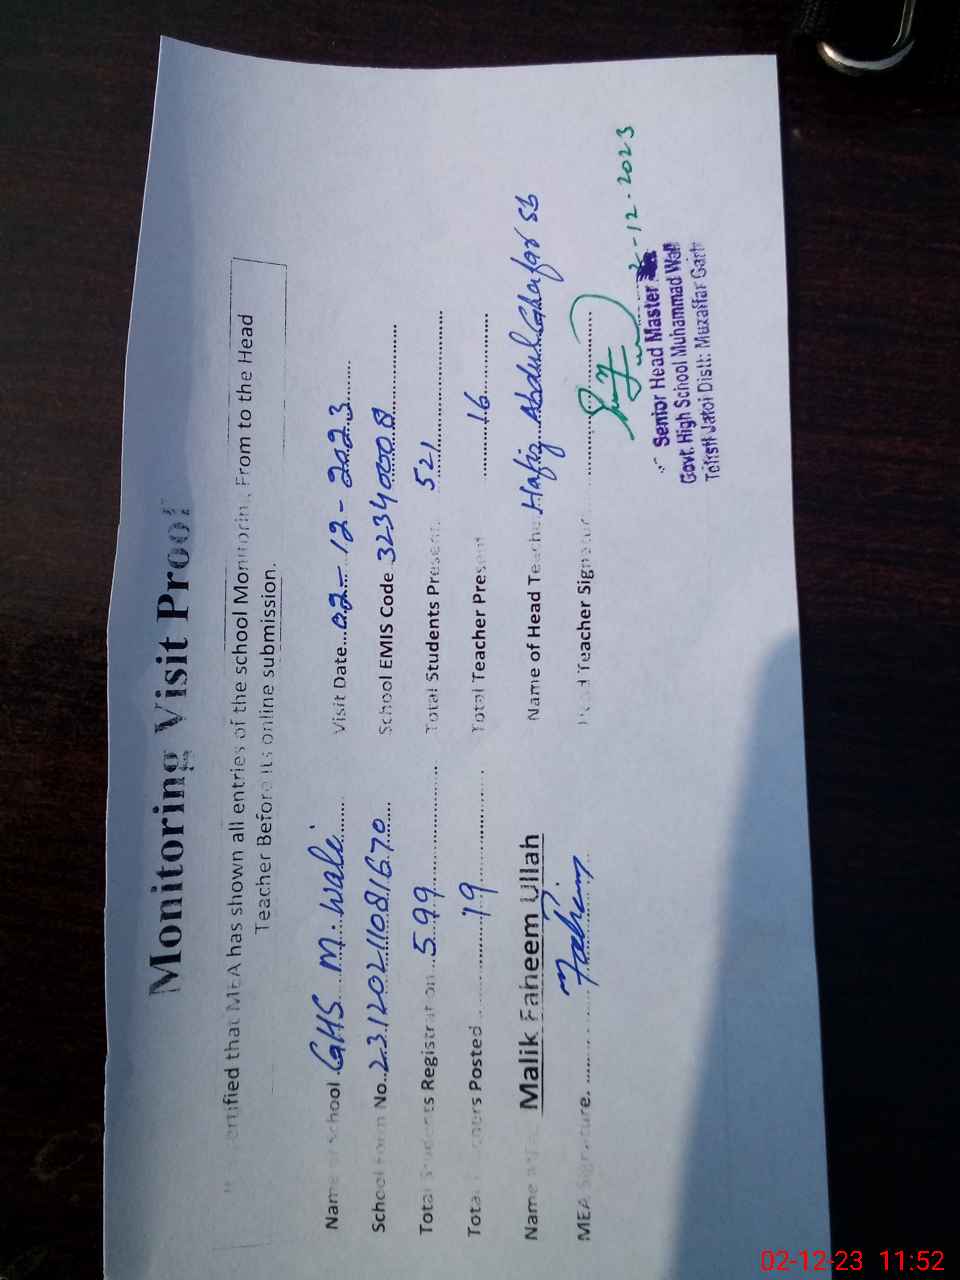 Monitoring Visit Proof
certified that MEA has shown all entries of the school Monitorin. From to the Head
Teacher Before its online submission.
Name of school GHS M. Wali Visit Date 02-12-2023
School Form No. 23120211081670 School EMIS Code 32340008
Total Students Registration 599 Total Students Present 521
Total Posted 19 Total Teacher Present 16
Name Malik Faheem Ullah Name of Head Teacher Hafiz Abdul Ghafar Sb
MEA Signature. Fahim Head Teacher Signature
-12-2023
Senior Head Master
Govt. High School Muhammad Wali
Jatoi Distt: Muzaffar Garh
02-12-23 11:52